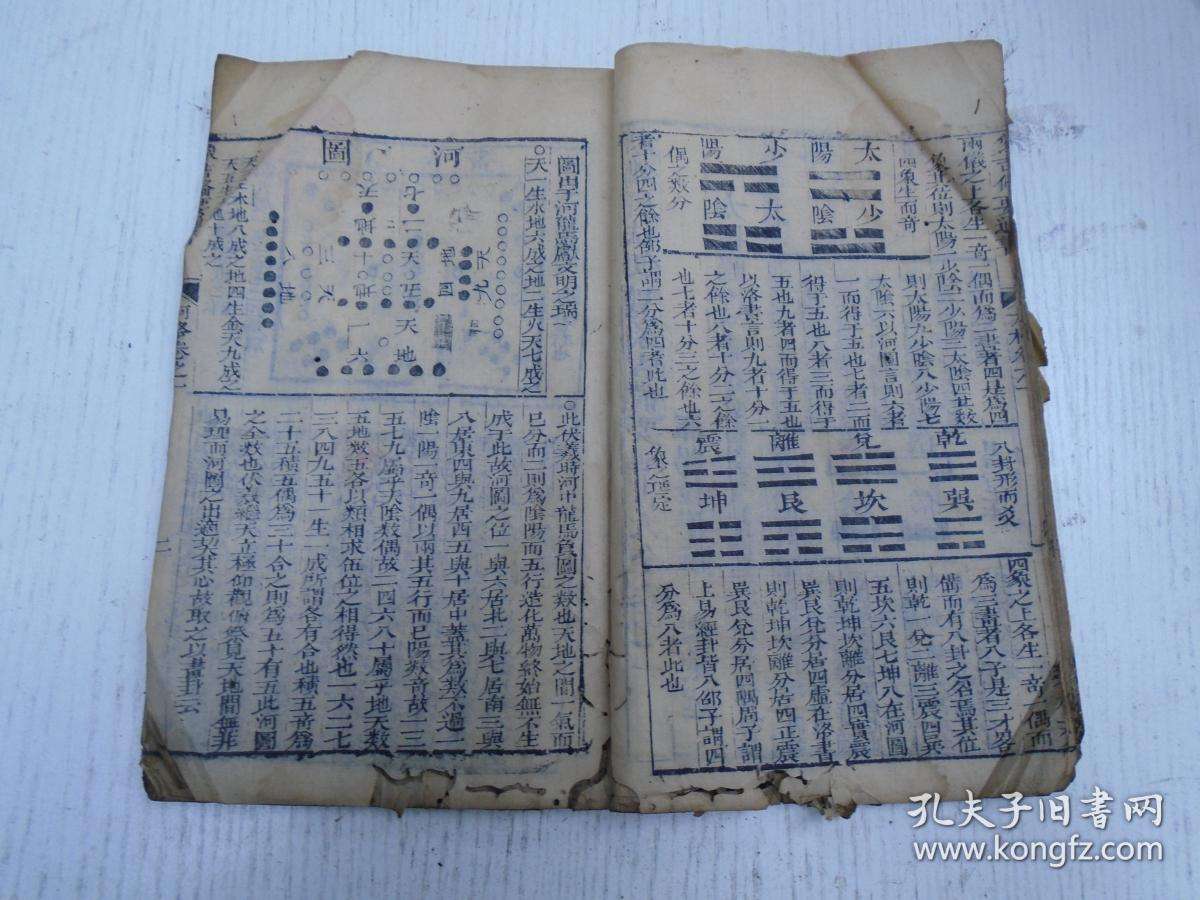 兩儀之上各生一奇
一偶而爲二畫者四是爲四
象其位則太陽一少陰二少陽三太陰四其數
則太陽九少陰八少陽七
太陰六以河圖言則六者
一而得于五也七者二而
得于五也八者三而得于
五也九者四而得于五也
以洛書言則九者十分一
之餘也八者十分二之餘
也七者十分三之餘也六
者十分四之餘也邵子謂二分爲四者此也
四象生而奇
偶之數分
太陽
少陰
少陽
太陰
八卦形而爻
象之理定
乾
兌
離
震
巽
坎
艮
坤
四象之上各生一奇一偶而
爲三畫者八于是三才畧
備而有八卦之名焉其位
則乾一兌二離三震四巽
五坎六艮七坤八在河圖
則乾坤坎離分居四實震
巽艮兌分居四虛在洛書
則乾坤坎離分居四正震
巽艮兌分居四隅周子謂
上易經卦皆八邵子謂四
分爲八者此也
圖出于河龍馬獻文明之瑞
天一生水地六成之地二生火天七成之
河圖
水地八成之地四生金天九成之
地十成之
此伏羲時河中龍馬負圖之数也天地之間一氣而
已分而二則爲陰陽而五行造化萬物終始無不生
成于此故河圖之位一與六居北二與七居南三與
八居東四與九居西五與十居中蓋其爲数不過
陰一陽一奇一偶以兩其五行而已陽数奇故一三
五七九屬乎天陰数偶故二四六八十屬乎地天数
五地数五各以類相求伍位之相得然也一六二七
三八四九五十一生一成所謂各有合也積五奇爲
二十五積五偶爲三十合之則爲五十有五此河圖
之全数也伏羲繼天立極仰觀俯察見天地間無非
易理而河圖之出適契其心故取之以畫卦云
二
孔夫子旧書网
www.kongfz.com